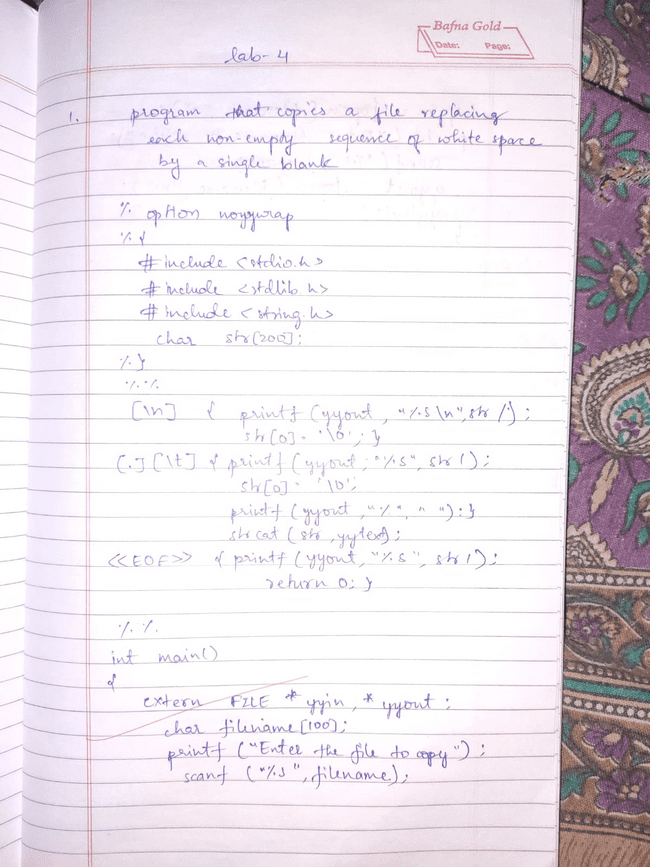 Bafna Gold
Date: Page:
lab-4
1. program that copies a file replacing
each non-empty sequence of white space
by a single blank
% option noyywrap
%{
#include <stdio.h>
#include <stdlib.h>
#include <string.h>
char str[200];
%}
%%
[\n] { printf (yyout, "%s\n", str);
str[0] = '\0'; }
[.][\t] { printf (yyout, "%s", str);
str[0] = '\0';
printf (yyout, "%", " "); }
strcat (str, yytext);
<<EOF>> { printf (yyout, "%s", str);
return 0; }
%%
int main()
{
extern FILE * yyin, * yyout;
char filename[100];
printf ("Enter the file to copy");
scanf ("%s", filename);